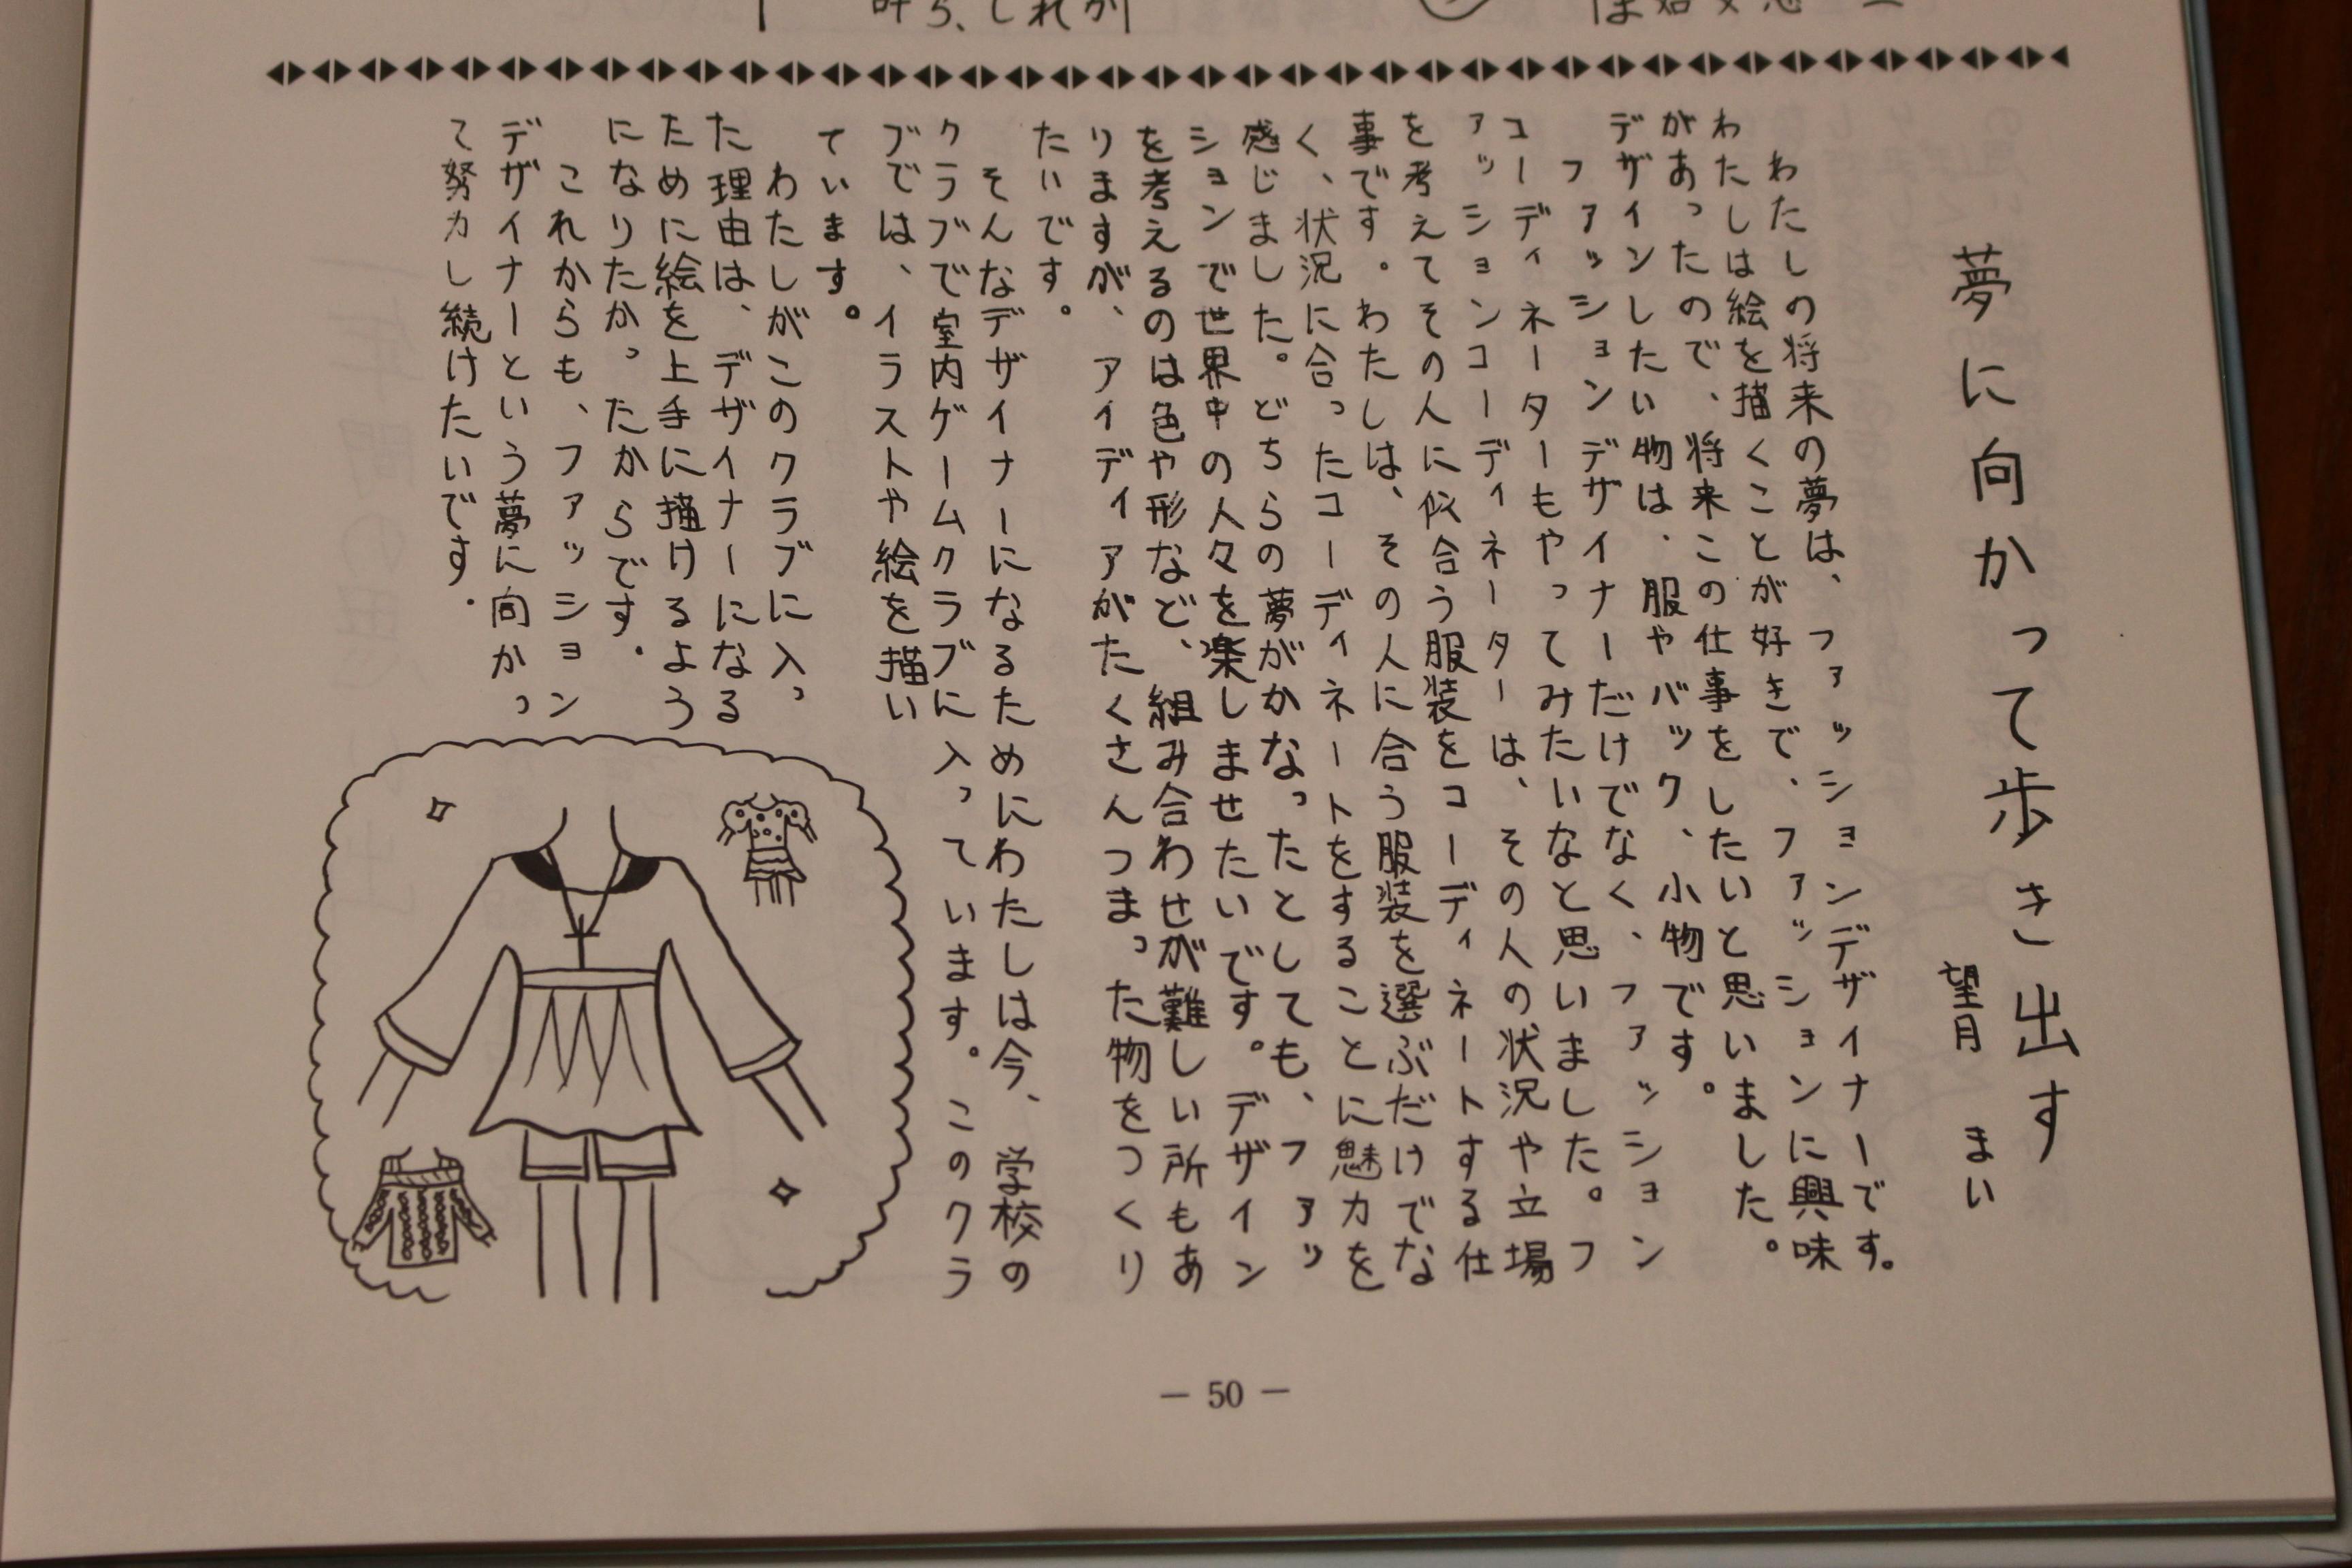 夢に向かって歩き出す
望月 まい
わたしの将来の夢は、ファッションデザイナーです。
わたしは絵を描くことが好きで、ファッションに興味
があったので、将来この仕事をしたいと思いました。
デザインしたい物は、服やバック、小物です。
ファッションデザイナーだけでなく、ファッション
コーディネーターもやってみたいなと思いました。フ
ァッションコーディネーターは、その人の状況や立場
を考えてその人に似合う服装をコーディネートする仕
事です。わたしは、その人に合う服装を選ぶだけでな
く、状況に合ったコーディネートをすることに魅力を
感じました。どちらの夢がかなったとしても、ファッ
ションで世界中の人々を楽しませたいです。デザイン
を考えるのは色や形など、組み合わせが難しい所もあ
りますが、アイディアがたくさんつまった物をつくり
たいです。
そんなデザイナーになるためにわたしは今、学校の
クラブで室内ゲームクラブに入っています。このクラ
ブでは、イラストや絵を描い
ています。
わたしがこのクラブに入っ
た理由は、デザイナーになる
ために絵を上手に描けるよう
になりたかったからです。
これからも、ファッション
デザイナーという夢に向かっ
て努力し続けたいです。
— 50 —